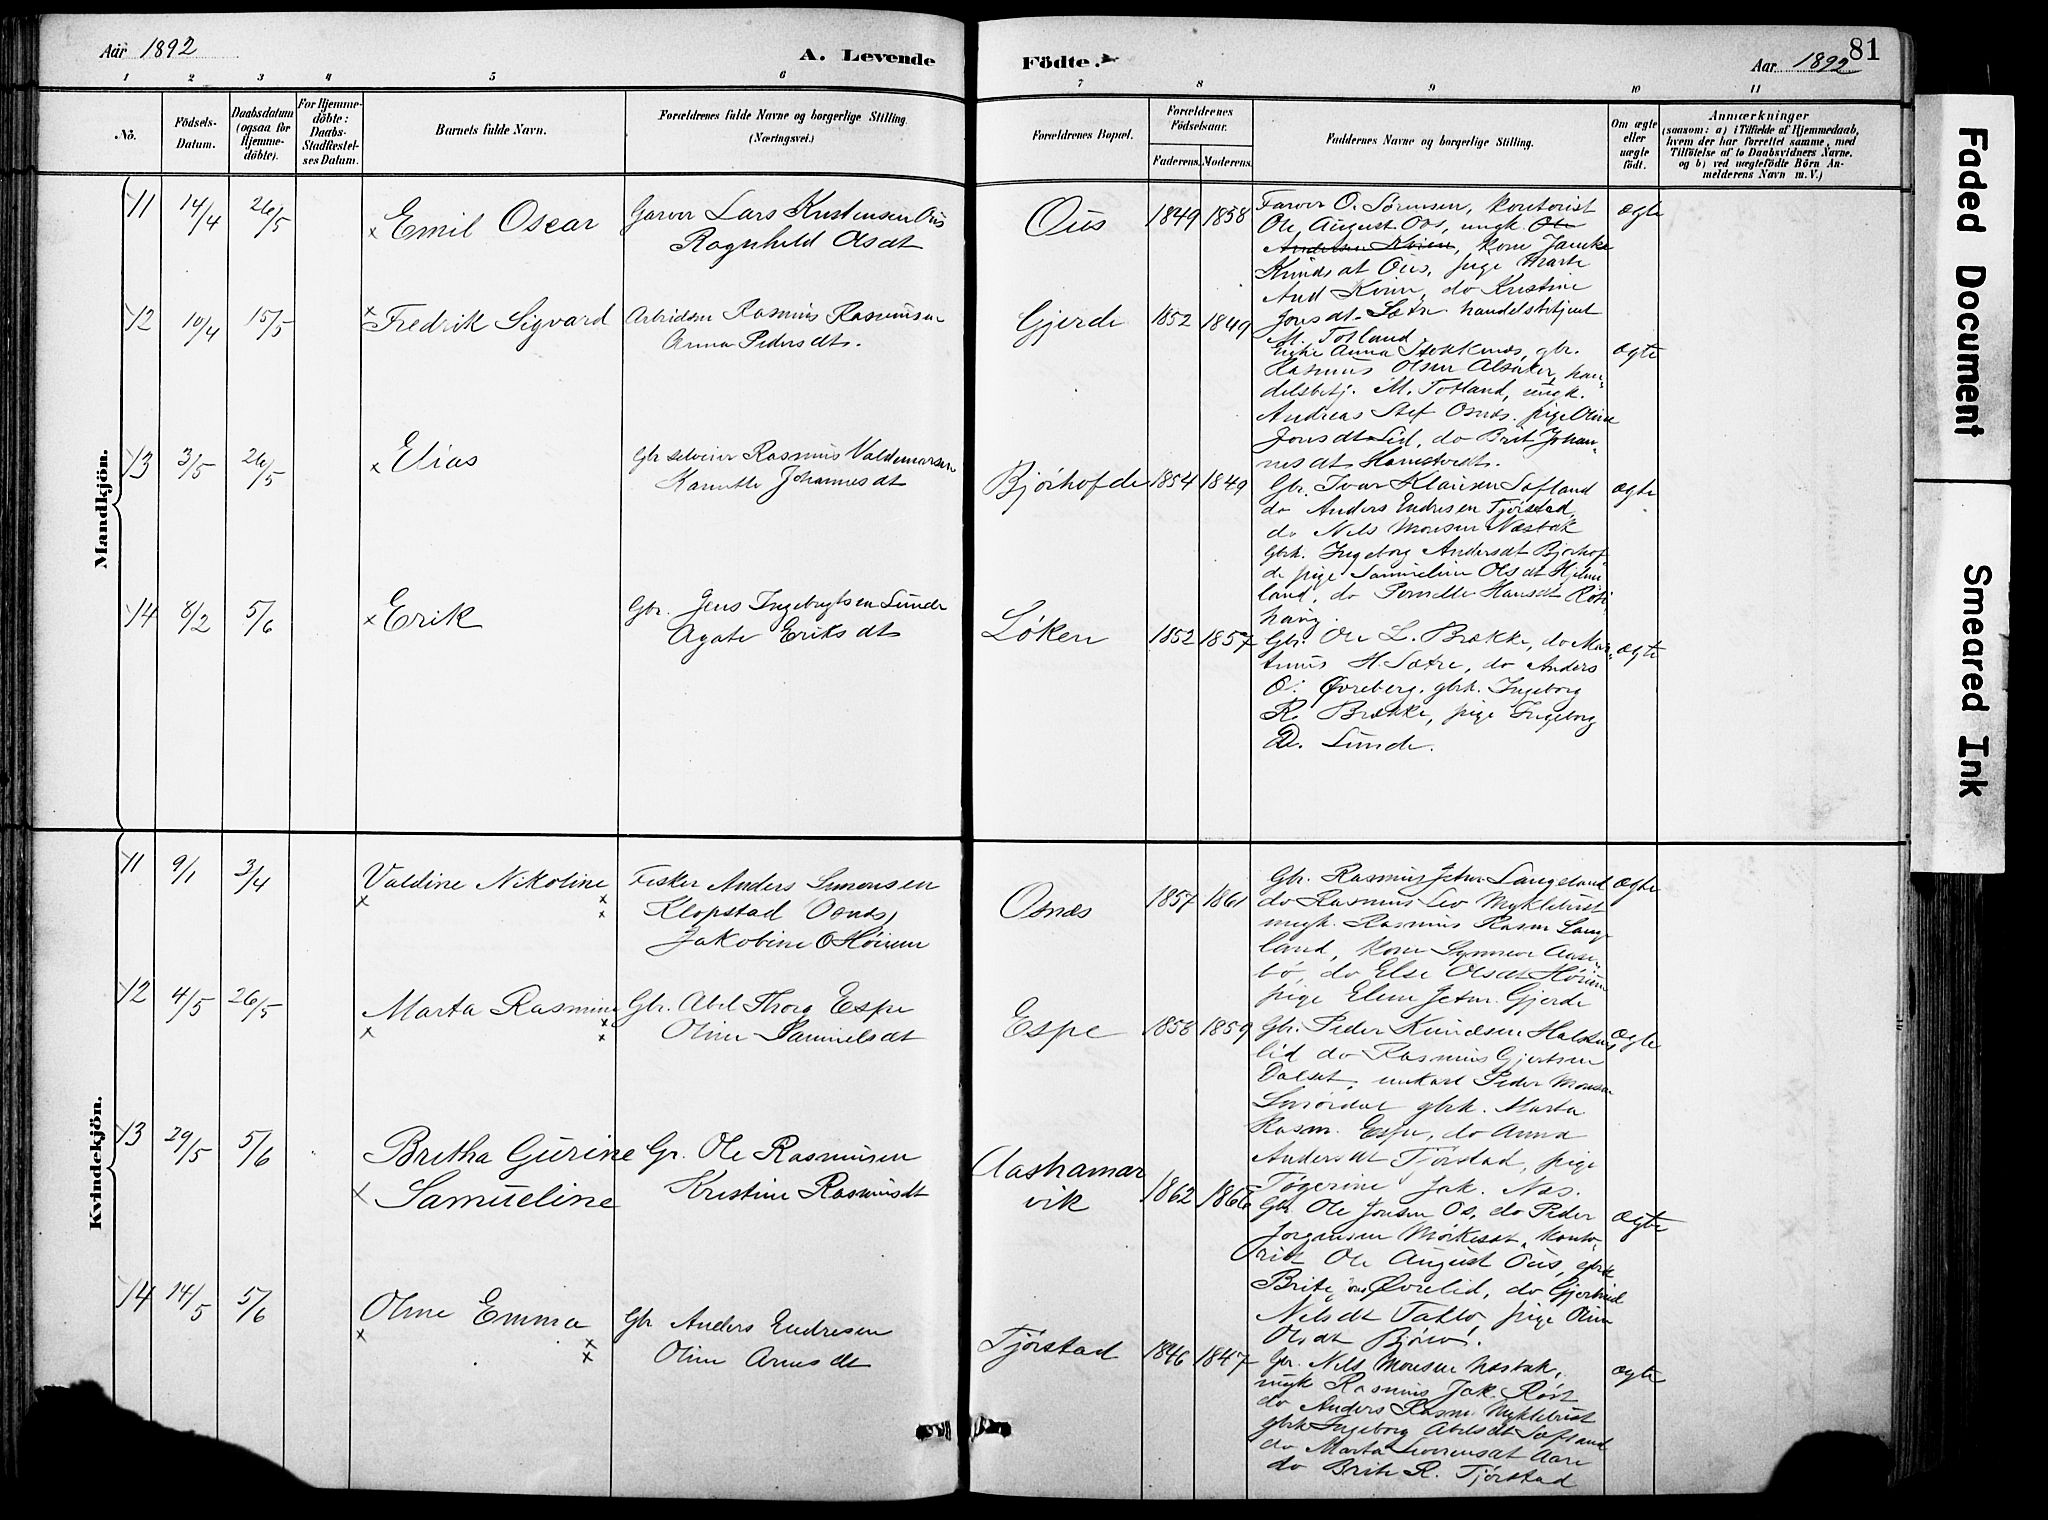 Aar 1892
A. Levende Födte.
Aar 1892
81
1 2 3 4 5 6 7 8 9 10 11
No.
Födsels-Datum.
Daabsdatum (ogsaa for Hjemme-döbte).
For Hjemme-döbte: Daabs-Stadfæstel-ses Datum.
Barnets fulde Navn.
Forældrenes fulde Navne og borgerlige Stilling
(Næringsvei.)
Forældrenes Bopæl.
Forældrenes Födselsaar.
Faderens. Moderens.
Faddernes Navne og borgerlige Stilling.
Om ægte eller uægte födt.
Anmærkninger
(saasom: a) i Tilfælde af Hjemmedaab,
hvem der har forrettet samme, med
Tilföielse af to Daabsvidners Navne.
og b) ved uægtefödte Börn An-
melderens Navn m. V.)
Mandkjön.
11 14/4 26/5 Emil Oscar
Garver Lars Kristensen Ous
Ragnhild Olsdt
Ous 1849 1858
Farver O. Sørensen, kontorist
Ole August Ous, ungk. Ole
Andelsen Kvien, kone Jamke
Knudsdt Ous, pige Marte
And Kvien, do Kristine
Jonsdt. Sætre handelsbetjent
M. Totland
ægte
12 10/4 15/5 Fredrik Sigvard
Arbeidsm Rasmus Rasmusen
Anna Pedersdt.
Gjerde 1852 1849
Enke Anna Stokknæs, gbr.
Rasmus Olsen Alsaker, han-
delsbetj. M. Totland, ungk.
Andreas Stef Osnæs. pige Oline
Jonsdt Lid, do Brit Johan-
nesdt Hamstvedt.
ægte
13 3/5 26/5 Elias
Gbr selveier Rasmus Valdemarsen
Kanutte Johannesdt
Bjørhofde 1854 1849
Gbr. Ivar Klausen Sætland
do Anders Endresen Tjørstad,
do Nils Monsen Næsbak
gbrk. Ingeborg Andersdt Bjørhof
de pige Samueline Olsdt Hjelm
land, do Pernelle Hansdt Røti
haug.
ægte
14 8/2 5/6 Erik
Gbr. Jens Ingebrigtsen Sunde
Agate Eriksdt
Løken 1852 1857
Gbr. Ole L. Brække, do Mar-
tinus H. Sætre, do Anders
O. Øvreberg. gbrk. Ingeborg
R. Brække, pige Ingeborg
D. Sunde.
ægte
Kvindekjön.
11 9/1 3/4 Valdine Nikoline
Fisker Anders Simonsen
Klopstad (Osnes)
Jakobine O Høinem
Osnæs 1857 1861
Gbr. Rasmus Jetm Langeland
do Rasmus Siv Myklebust
ungk. Rasmus Rasm Lange
land, kone Synneve Aase
bø, do Else Olsdt Høinem
pige Elen Jetm. Gjerde
ægte
12 4/5 26/5 Marta Rasmine
Gbr. Abel Thorg Espe
Oline Samuelsdt
Espe 1858 1859
Gbr. Peder Knudsen Halsten
lid do Rasmus Gjertsen
Dalset, unkarl Peder Monsen
Smørdal gbrk. Marta
Rasm. Espe, do Anna
Andersdt Tjørstad, pige
Tøgerine Jak. Næs.
ægte
13 29/5 5/6 Britha Gurine
Samueline
Gr. Ole Rasmusen
Kristine Rasmusdt
Aashamar
vik 1862 1866
Gbr Ole Jonsen Os, do Peder
Jørgensen Mørkesdt, konto-
rist Ole August Ous, gbrk
Brite Øvrelid, do Gjertrud
Nilsdt Taklo, pige Oline
Olsdt Bjørlo.
ægte
14 14/5 5/6 Oline Emma
Gbr Anders Endresen
Oline Arnesdt
Tjørstad 1846 1847
Gbr. Nils Monsen Næsbak,
ungk Rasmus Jak. Røst
do Anders Rasm. Myklebust
gbrk Ingeborg Abelsdt Sætland
do Marta Severinsdt Aare
do Brite R. Tjørstad
ægte
Faded Document
Smeared Ink